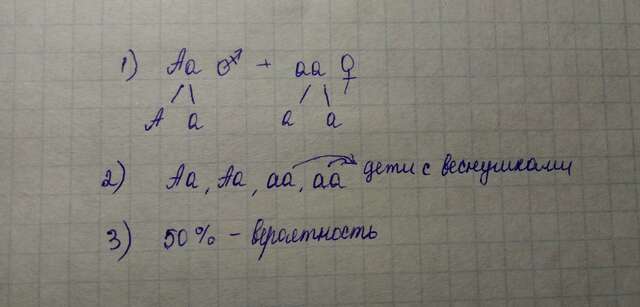 1) Aa ♂ + aa ♀
A a a a
2) Aa, Aa, aa, aa дети с веснушками
3) 50% - вероятность